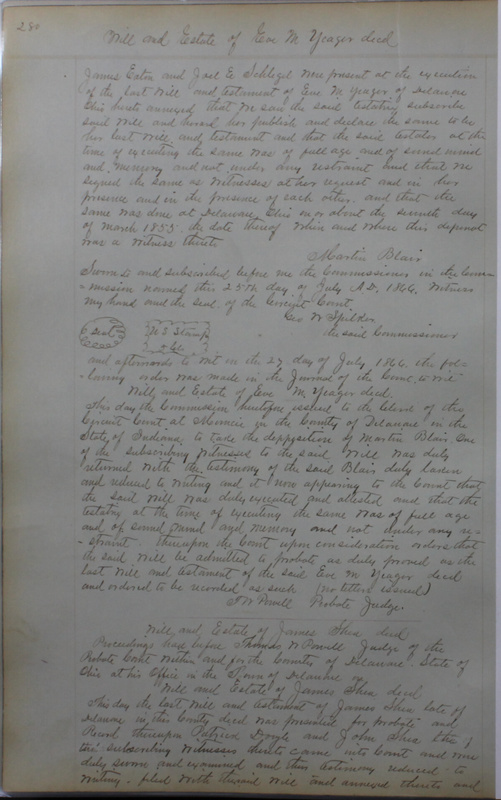 280
Will and Estate of Eve M Yeager decd
James Eaton and Joel E Schlegel were present at the execution
of the last will and testament of Eve M Yeager of Delaware
Ohio hereto annexed that we saw the said testatrix subscribe
said will and heard her publish and declare the same to be
her last will and testament and that the said testator at the
time of executing the same was of full age and of sound mind
and memory and not under any restraint and that we
signed the same as witnesses at her request and in her
presence and in the presence of each other and that the
same was done at Delaware Ohio on or about the seventh day
of March 1855 the date thereof when and where this deponent
was a witness thereto
Martin Blair
Sworn to and subscribed before me the Commissioner in the Com-
-mission named this 25th day of July A.D. 1866. Witness
my hand and the seal of the Circuit Court
Geo W Spilker
the said Commissioner
Seal
U S Stamp
and afterwards to wit on the 27 day of July 1866 the fol-
-lowing order was made in the Journal of the Court to wit
Will and Estate of Eve M Yeager decd
This day the Commission heretofore issued to the Clerk of the
Circuit Court at Muncie in the County of Delaware in the
State of Indiana to take the deposition of Martin Blair one
of the subscribing witnesses to the said Will was duly
returned with the testimony of the said Blair duly taken
and reduced to writing and it now appearing to the Court that
the said will was duly executed and attested and that the
testatrix at the time of executing the same was of full age
and of sound mind and memory and not under any re-
-straint thereupon the Court upon consideration orders that
the said will be admitted to probate as duly proved as the
last will and testament of the said Eve M Yeager decd
and ordered to be recorded as such (no letters issued)
T W Powell Probate Judge.
Will and Estate of James Shea decd
Proceedings had before Thomas W Powell Judge of the
Probate Court within and for the County of Delaware State of
Ohio at his office in the Town of Delaware
Will and Estate of James Shea decd
This day the last will and testament of James Shea late of
Delaware in this County decd was presented for probate and
Record thereupon Patrick Doyle and John Shea the
subscribing witnesses thereto came into Court and were
duly sworn and examined and their testimony reduced to
writing filed with the said will and annexed thereto and